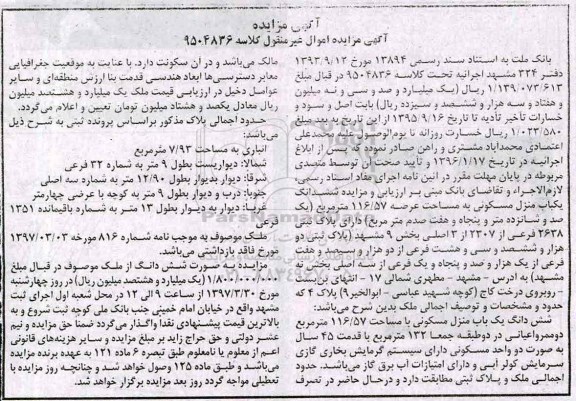 آگهی مزایده
آگهی مزایده اموال غیرمنقول کلاسه ۹۵۰۴۸۳۶
بانک ملت به استناد سند رسمی ۱۳۸۹۴ مورخ ۱۳۹۳/۹/۱۲
دفتر ۳۲۴ مشهد اجرائیه تحت کلاسه ۹۵۰۴۸۳۶ در قبال مبلغ
۱/۱۳۹/۰۷۳/۶۱۳ ریال (یک میلیارد و صد و سی و نه میلیون
و هفتاد و سه هزار و ششصد و سیزده ریال) بابت اصل و سود و
خسارات تأخیر تأدیه تا تاریخ ۱۳۹۵/۹/۱۶ از این تاریخ به بعد مبلغ
۱/۰۲۳/۵۸۰ ریال خسارت روزانه تا یوم‌الوصول علیه محمدعلی
اعتمادی محمدآباد مشتری و راهن صادر نموده که پس از ابلاغ
اجرائیه در تاریخ ۱۳۹۶/۱/۱۷ و تأیید صحت آن توسط متصدی
مربوطه در پایان مهلت مقرر در آئین نامه اجرای مفاد اسناد رسمی،
لازم‌الاجراء و تقاضای بانک مبنی بر ارزیابی و مزایده ششدانگ
یکباب منزل مسکونی به مساحت عرصه ۱۱۶/۵۷ مترمربع (یک
صد و شانزده متر و پنجاه و هفت صدم متر مربع) دارای پلاک ثبتی
۲۶۳۸ فرعی از ۲۳۰۷ از ۳ اصلی بخش ۹ مشهد (پلاک ثبتی دو
هزار و ششصد و سی و هشت فرعی از دو هزار و سیصد و هفت
فرعی از یک هزار و صد و پنجاه و یک فرعی از سه اصلی بخش نه
مشهد) به ادرس - مشهد - مطهری شمالی ۱۷ - انتهای بن‌بست
- روبروی درخت کاج (کوچه شهید عباسی - ابوالخیر۹) پلاک ۴ که
حدود و مشخصات و توصیف اجمالی ملک بدین شرح می‌باشد:
شش دانگ یک باب منزل مسکونی با مساحت ۱۱۶/۵۷ مترمربع
دوممرواعیانی در دوطبقه جمعا ۱۳۲ مترمربع با قدمت ۴۵ سال
به صورت دو واحد مسکونی دارای سیستم گرمایش بخاری گازی
سرمایش کولر آبی و دارای امتیازات آب برق گاز می‌باشند. حدود
اجمالی ملک و پلاک ثبتی مطابقت دارد و درحال حاضر در تصرف
مالک می‌باشد و در آن سکونت دارد. با عنایت به موقعیت جغرافیایی
معابر دسترسی‌ها ابعاد هندسی قدمت بنا ارزش منطقه‌ای و سایر
عوامل دخیل در ارزیابی قیمت ملک یک میلیارد و هشتصد میلیون
ریال معادل یکصد و هشتاد میلیون تومان تعیین و اعلام می‌گردد.
حدود اجمالی پلاک مذکور براساس پرونده ثبتی به شرح ذیل
می‌باشد:
انباری به مساحت ۷/۹۳ مترمربع
شمالا: دیواریست بطول ۹ متر به شماره ۳۲ فرعی
شرقا: دیوار بدیوار بطول ۱۲/۹۰ متر به شماره سه اصلی
جنوبا: درب و دیوار بطول ۹ متر به کوچه با عرضی چهارمتر
غربا: دیوار به دیوار بطول ۱۳ متر به شماره باقیمانده ۱۳۵۱
فرعی
ملک موصوف به موجب نامه شماره ۸۱۶ مورخه ۱۳۹۷/۰۳/۰۳
مورخ فاقد بازداشتی می‌باشد.
مزایده به صورت شش دانگ از ملک موصوف در قبال مبلغ
(یک میلیارد و هشتصد میلیون ریال) در روز چهارشنبه
مورخ ۱۳۹۷/۳/۳۰ از ساعت ۹ الی ۱۲ در محل شعبه اول اجرای ثبت
مشهد واقع در خیابان امام خمینی جنب بانک ملی کوچه ثبت شروع و به
بالاترین قیمت پیشنهادی نقدا واگذار می‌گردد ضمنا حق مزایده و نیم
عشر دولتی و حق حراج زاید بر مبلغ مزایده و سایر هزینه‌های قانونی
اعم از معلوم یا نامعلوم طبق تبصره ۶ ماده ۱۲۱ به عهده برنده مزایده
می‌باشد و طبق ماده ۱۲۵ وصول خواهد شد و چنانچه روز مزایده با
تعطیلی مواجه گردد روز بعد مزایده برگزار خواهد شد.